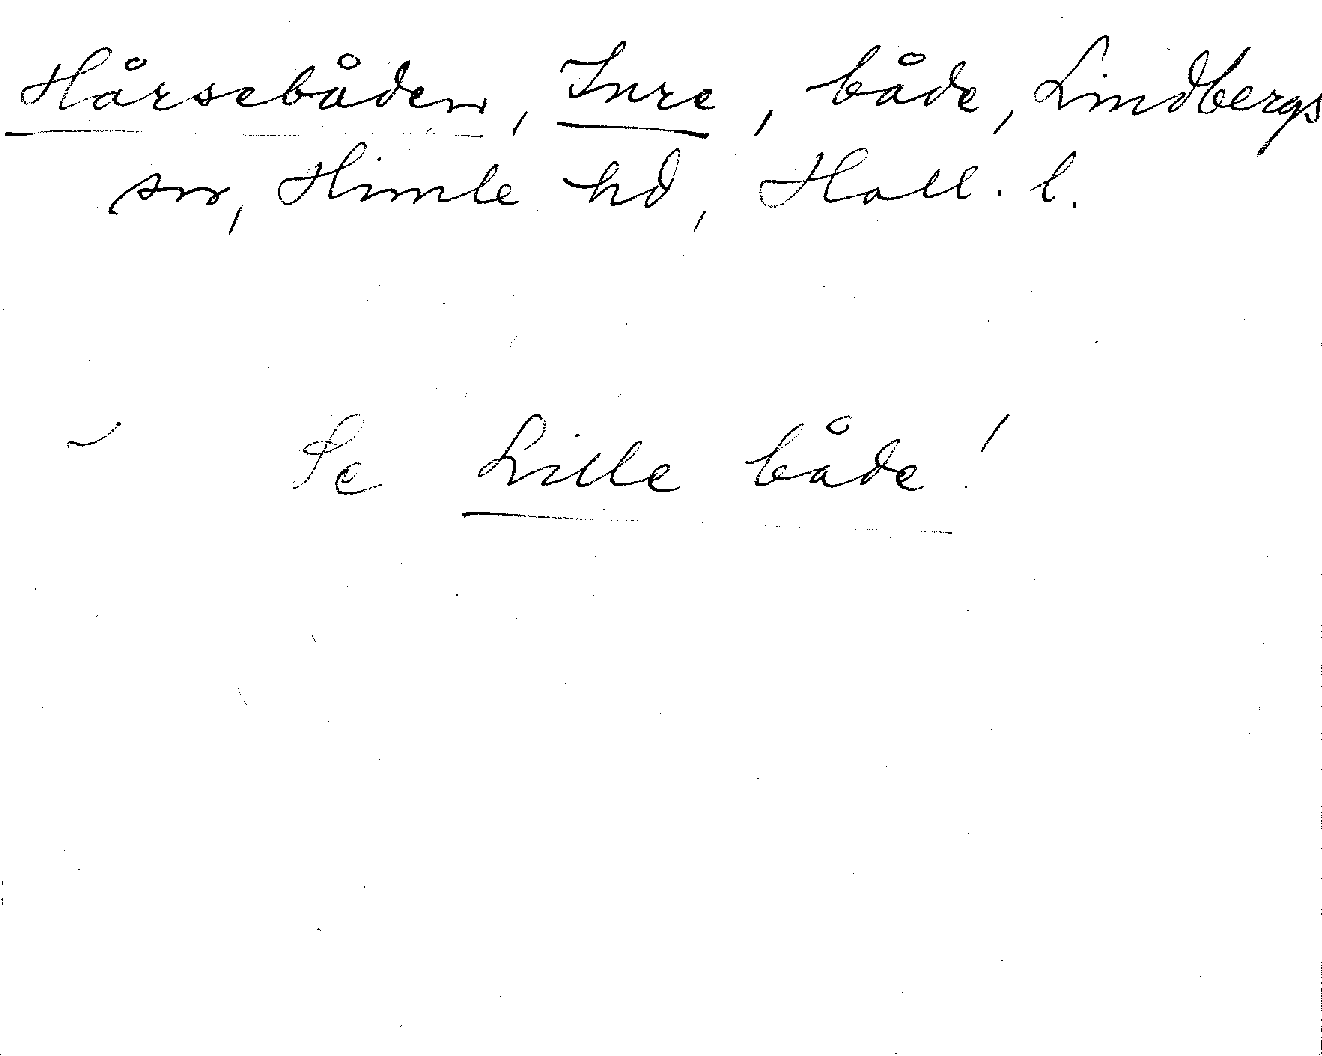 Hårsebåden, Inre, både, Lindbergs
sn, Himle hd, Hall. l.
Se Lille både!